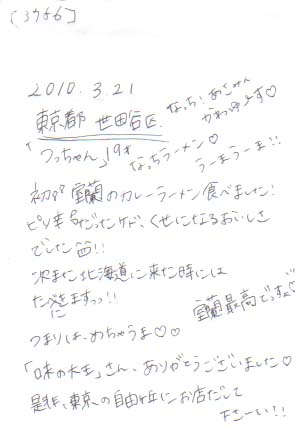 [3756]
2010.3.21
東京都 世田谷区
なっち!あさみん
かわゆす♡
「つっちゃん」19才
なっちラーメン♡
うーまうーま!!
初めて室蘭のカレーラーメン食べました!
ピリ辛だったケド、くせになるおいしさ
でした!!
次また北海道に来た時には
たべにきますっっ!!
室蘭最高でっすょ♡
つまりは、めちゃうま♡♡
「味の大王」さん、ありがとうございました♡
是非、東京の自由が丘にお店だして
下さーい!!